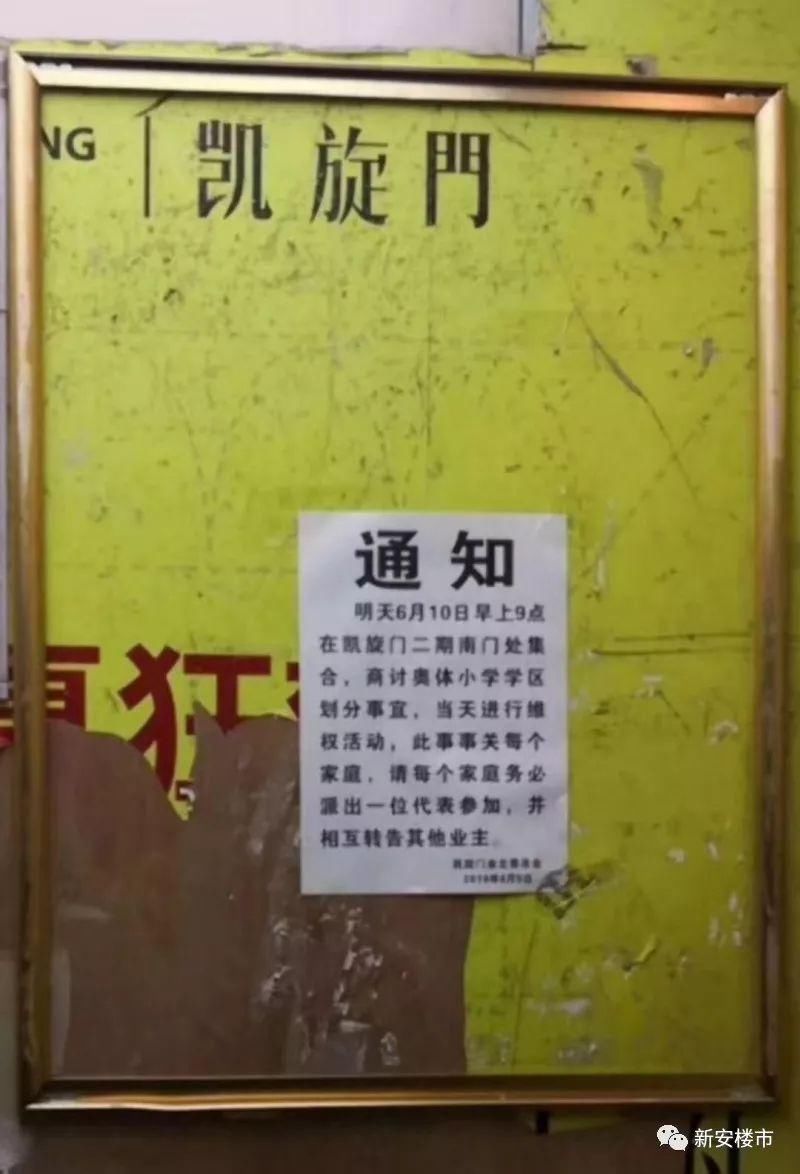 NG
凯旋門
狂
通知
明天6月10日早上9点
在凯旋门二期南门处集
合，商讨奥体小学学区
划分事宜，当天进行维
权活动，此事事关每个
家庭，请每个家庭务必
派出一位代表参加，并
相互转告其他业主。
凯旋门业主委员会
新安楼市